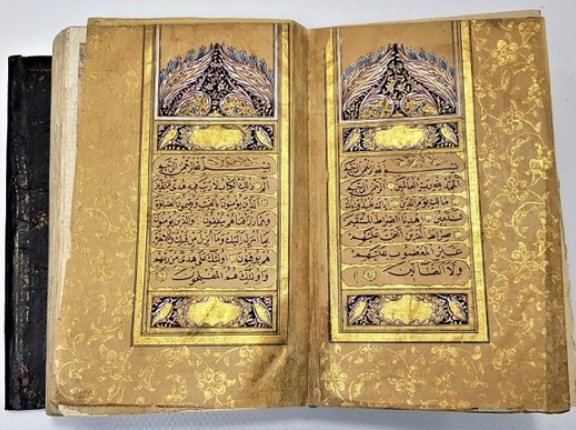 بسم الله الرحمن الرحيم
الحمد لله رب العالمين الرحمن الرحيم
مالك يوم الدين اياك نعبد واياك
نستعين اهدنا الصراط المستقيم
صراط الذين انعمت عليهم
غير المغضوب عليهم
ولا الضالين
بسم الله الرحمن الرحيم
الم ذلك الكتاب لا ريب فيه هدى للمتقين
الذين يؤمنون بالغيب ويقيمون الصلوة
ومما رزقناهم ينفقون والذين يؤمنون
بما انزل اليك وما انزل من قبلك وبالاخرة
هم يوقنون اولئك على هدى من ربهم
واولئك هم المفلحون